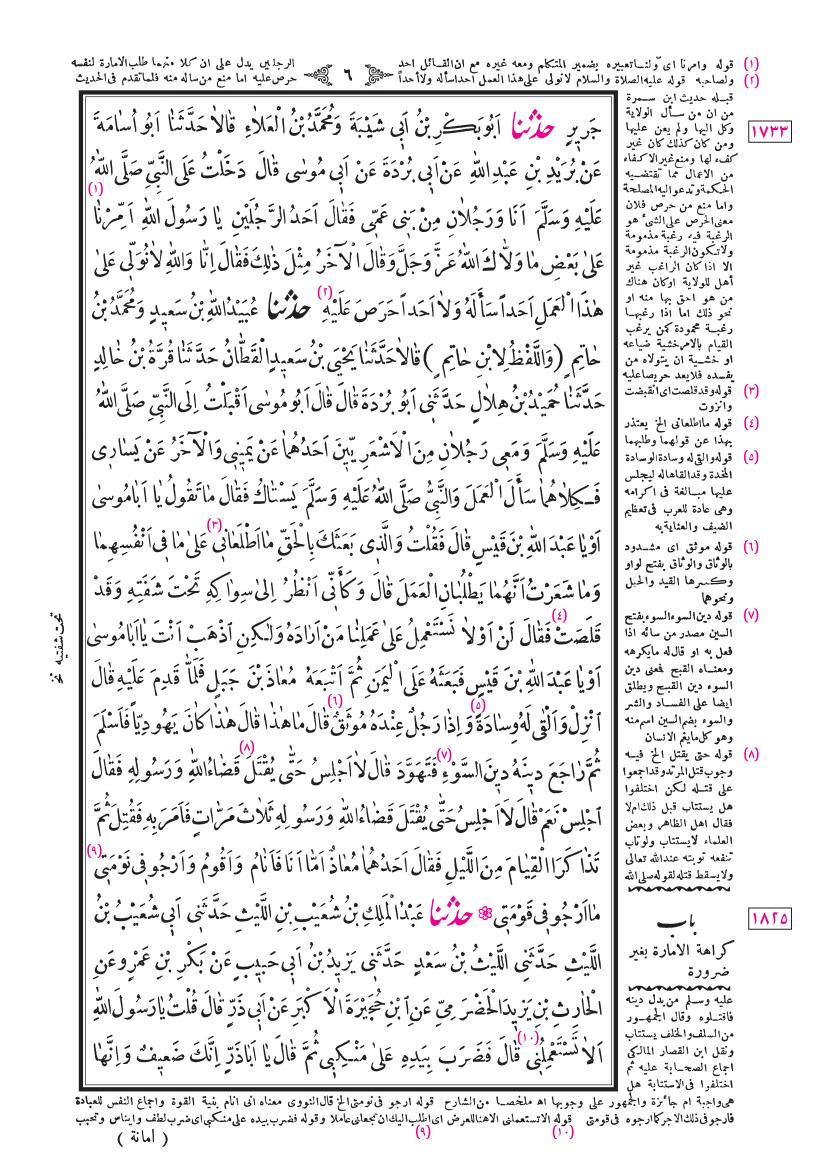 (١) قوله وامرنا اى ولنا تعبيره بضمير المتكلم ومعه غيره مع ان القائل احد الرجلين يدل على ان كلا منهما طلب الامارة لنفسه
(٢) ولصاحبه قوله عليه الصلاة والسلام لانولى على هذا العمل احدا سأله ولا أحداً حرص عليه اما منع من سأله منه فلما تقدم فى الحديث
٦
جَرِيرٍ حدثنا اَبُو بَكْرِ بْنُ اَبِي شَيْبَةَ وَمُحَمَّدُ بْنُ الْعَلَاءِ قَالَا حَدَّثَنَا اَبُو اُسَامَةَ
عَنْ بُرَيْدِ بْنِ عَبْدِ اللهِ عَنْ اَبِي بُرْدَةَ عَنْ اَبِي مُوسَى قَالَ دَخَلْتُ عَلَى النَّبِيِّ صَلَّى اللهُ
عَلَيْهِ وَسَلَّمَ اَنَا وَرَجُلَانِ مِنْ بَنِي عَمِّي فَقَالَ اَحَدُ الرَّجُلَيْنِ يَا رَسُولَ اللهِ اَمِّرْنَا (١)
عَلَى بَعْضِ مَا وَلَّاكَ اللهُ عَزَّ وَجَلَّ وَقَالَ الْآخَرُ مِثْلَ ذَلِكَ فَقَالَ اِنَّا وَاللهِ لَا نُوَلِّي عَلَى
هٰذَا الْعَمَلِ اَحَداً سَأَلَهُ وَلَا اَحَداً حَرَصَ عَلَيْهِ (٢) حدثنا عُبَيْدُ اللهِ بْنُ سَعِيدٍ وَمُحَمَّدُ بْنُ
حَاتِمٍ (وَاللَّفْظُ لِابْنِ حَاتِمٍ) قَالَا حَدَّثَنَا يَحْيَى بْنُ سَعِيدٍ الْقَطَّانُ حَدَّثَنَا قُرَّةُ بْنُ خَالِدٍ
حَدَّثَنَا حُمَيْدُ بْنُ هِلَالٍ حَدَّثَنِي اَبُو بُرْدَةَ قَالَ قَالَ اَبُو مُوسَى اَقْبَلْتُ اِلَى النَّبِيِّ صَلَّى اللهُ
عَلَيْهِ وَسَلَّمَ وَمَعِي رَجُلَانِ مِنَ الْاَشْعَرِيِّينَ اَحَدُهُمَا عَنْ يَمِينِي وَالْآخَرُ عَنْ يَسَارِي
فَكِلَاهُمَا سَأَلَ الْعَمَلَ وَالنَّبِيُّ صَلَّى اللهُ عَلَيْهِ وَسَلَّمَ يَسْتَاكُ فَقَالَ مَا تَقُولُ يَا اَبَا مُوسَى
اَوْ يَا عَبْدَ اللهِ بْنَ قَيْسٍ قَالَ فَقُلْتُ وَالَّذِي بَعَثَكَ بِالْحَقِّ مَا اَطْلَعَانِي (٣) عَلَى مَا فِي اَنْفُسِهِمَا
وَمَا شَعَرْتُ اَنَّهُمَا يَطْلُبَانِ الْعَمَلَ قَالَ وَكَأَنِّي اَنْظُرُ اِلَى سِوَاكِهِ تَحْتَ شَفَتِهِ وَقَدْ
قَلَصَتْ (٤) فَقَالَ لَنْ اَوْ لَا نَسْتَعْمِلُ عَلَى عَمَلِنَا مَنْ اَرَادَهُ وَلٰكِنِ اذْهَبْ اَنْتَ يَا اَبَا مُوسَى
اَوْ يَا عَبْدَ اللهِ بْنَ قَيْسٍ فَبَعَثَهُ عَلَى الْيَمَنِ ثُمَّ اَتْبَعَهُ مُعَاذَ بْنَ جَبَلٍ فَلَمَّا قَدِمَ عَلَيْهِ قَالَ
اَنْزِلْ وَاَلْقَى لَهُ وِسَادَةً (٥) وَاِذَا رَجُلٌ عِنْدَهُ مُوثَقٌ (٦) قَالَ مَا هٰذَا قَالَ هٰذَا كَانَ يَهُودِيّاً فَاَسْلَمَ
ثُمَّ رَاجَعَ دِينَهُ دِينَ السَّوْءِ (٧) فَتَهَوَّدَ قَالَ لَا اَجْلِسُ حَتَّى يُقْتَلَ (٨) قَضَاءُ اللهِ وَرَسُولِهِ فَقَالَ
اجْلِسْ نَعَمْ قَالَ لَا اَجْلِسُ حَتَّى يُقْتَلَ قَضَاءُ اللهِ وَرَسُولِهِ ثَلَاثَ مَرَّاتٍ فَاَمَرَ بِهِ فَقُتِلَ ثُمَّ
تَذَاكَرَا الْقِيَامَ مِنَ اللَّيْلِ فَقَالَ اَحَدُهُمَا مُعَاذٌ اَمَّا اَنَا فَاَنَامُ وَاَقُومُ وَاَرْجُو فِي نَوْمَتِي (٩)
مَا اَرْجُو فِي قَوْمَتِي حدثنا عَبْدُ الْمَلِكِ بْنُ شُعَيْبِ بْنِ اللَّيْثِ حَدَّثَنِي اَبِي شُعَيْبُ بْنُ
اللَّيْثِ حَدَّثَنِي اللَّيْثُ بْنُ سَعْدٍ حَدَّثَنِي يَزِيدُ بْنُ اَبِي حَبِيبٍ عَنْ بَكْرِ بْنِ عَمْرٍو عَنِ
الْحَارِثِ بْنِ يَزِيدَ الْحَضْرَمِيِّ عَنِ ابْنِ حُجَيْرَةَ الْاَكْبَرِ عَنْ اَبِي ذَرٍّ قَالَ قُلْتُ يَا رَسُولَ اللهِ
اَلَا تَسْتَعْمِلُنِي (١٠) قَالَ فَضَرَبَ بِيَدِهِ عَلَى مَنْكِبِي ثُمَّ قَالَ يَا اَبَا ذَرٍّ اِنَّكَ ضَعِيفٌ وَاِنَّهَا
تحت شفتيه نخ
١٧٣٣
قبله حديث ابن سمرة
من ان من سأل الولاية
وكل اليها ولم يعن عليها
ومن كان كذلك كان غير
كفء لها ومنع غير الاكفاء
من الاعمال مما تقتضيه
الحكمة وتدعو اليه المصلحة
واما منع من حرص فلان
معنى الحرص على الشئ هو
الرغبة فيه رغبة مذمومة
ولا تكون الرغبة مذمومة
الا اذا كان الراغب غير
أهل للولاية اوكان هناك
من هو احق بها منه او
نحو ذلك اما اذا رغبها
رغبة محمودة كمن يرغب
القيام بالامر خشية ضياعه
او خشية ان يتولاه من
يفسده فلا يعد حريصا عليه
(٣) قوله وقد قلصت اى انقبضت
وانزوت
(٤) قوله ما اطلعانى الخ يعتذر
بهذا عن قولهما وطلبهما
(٥) قوله والقى له وسادة الوسادة
المخدة وقد القاها له ليجلس
عليها مبالغة فى اكرامه
وهى عادة للعرب فى تعظيم
الضيف والعناية به
(٦) قوله موثق اى مشدود
بالوثاق والوثاق بفتح لواو
وكسرها القيد والحبل
ونحوهما
(٧) قوله دين السوء السوء بفتح
السين مصدر من سائه اذا
فعل به او قال له مايكرهه
ومعناه القبيح فمعنى دين
السوء دين القبيح ويطلق
ايضا على الفساد والشر
والسوء بضم السين اسم منه
وهو كل مايغم الانسان
(٨) قوله حتى يقتل الخ فيه
وجوب قتل المرتد وقد اجمعوا
على قتله لكن اختلفوا
هل يستتاب قبل ذلك ام لا
فقال اهل الظاهر وبعض
العلماء لا يستتاب ولو تاب
تنفعه توبته عند الله تعالى
ولا يسقط قتله لقوله صلى الله
١٨٢٥
باب
كراهة الامارة بغير
ضرورة
عليه وسلم من بدل دينه
فاقتلوه وقال الجمهور
من السلف والخلف يستتاب
ونقل ابن القصار المالكى
اجماع الصحابة عليه ثم
اختلفوا فى الاستتابة هل
هى واجبة ام جائزة والجمهور على وجوبها اه ملخصا من الشارح قوله ارجو فى نومتى الخ قال النووى معناه انى انام بنية القوة واجماع النفس للعبادة
فارجو فى ذلك الاجر كما ارجوه فى قومتى (٩) قوله الا تستعملنى الا هنا للعرض اى اطلب اليك ان تجعلنى عاملا وقوله فضرب بيده على منكبى اى ضرب لطف وايناس وتحبيب (١٠)
( امانة )